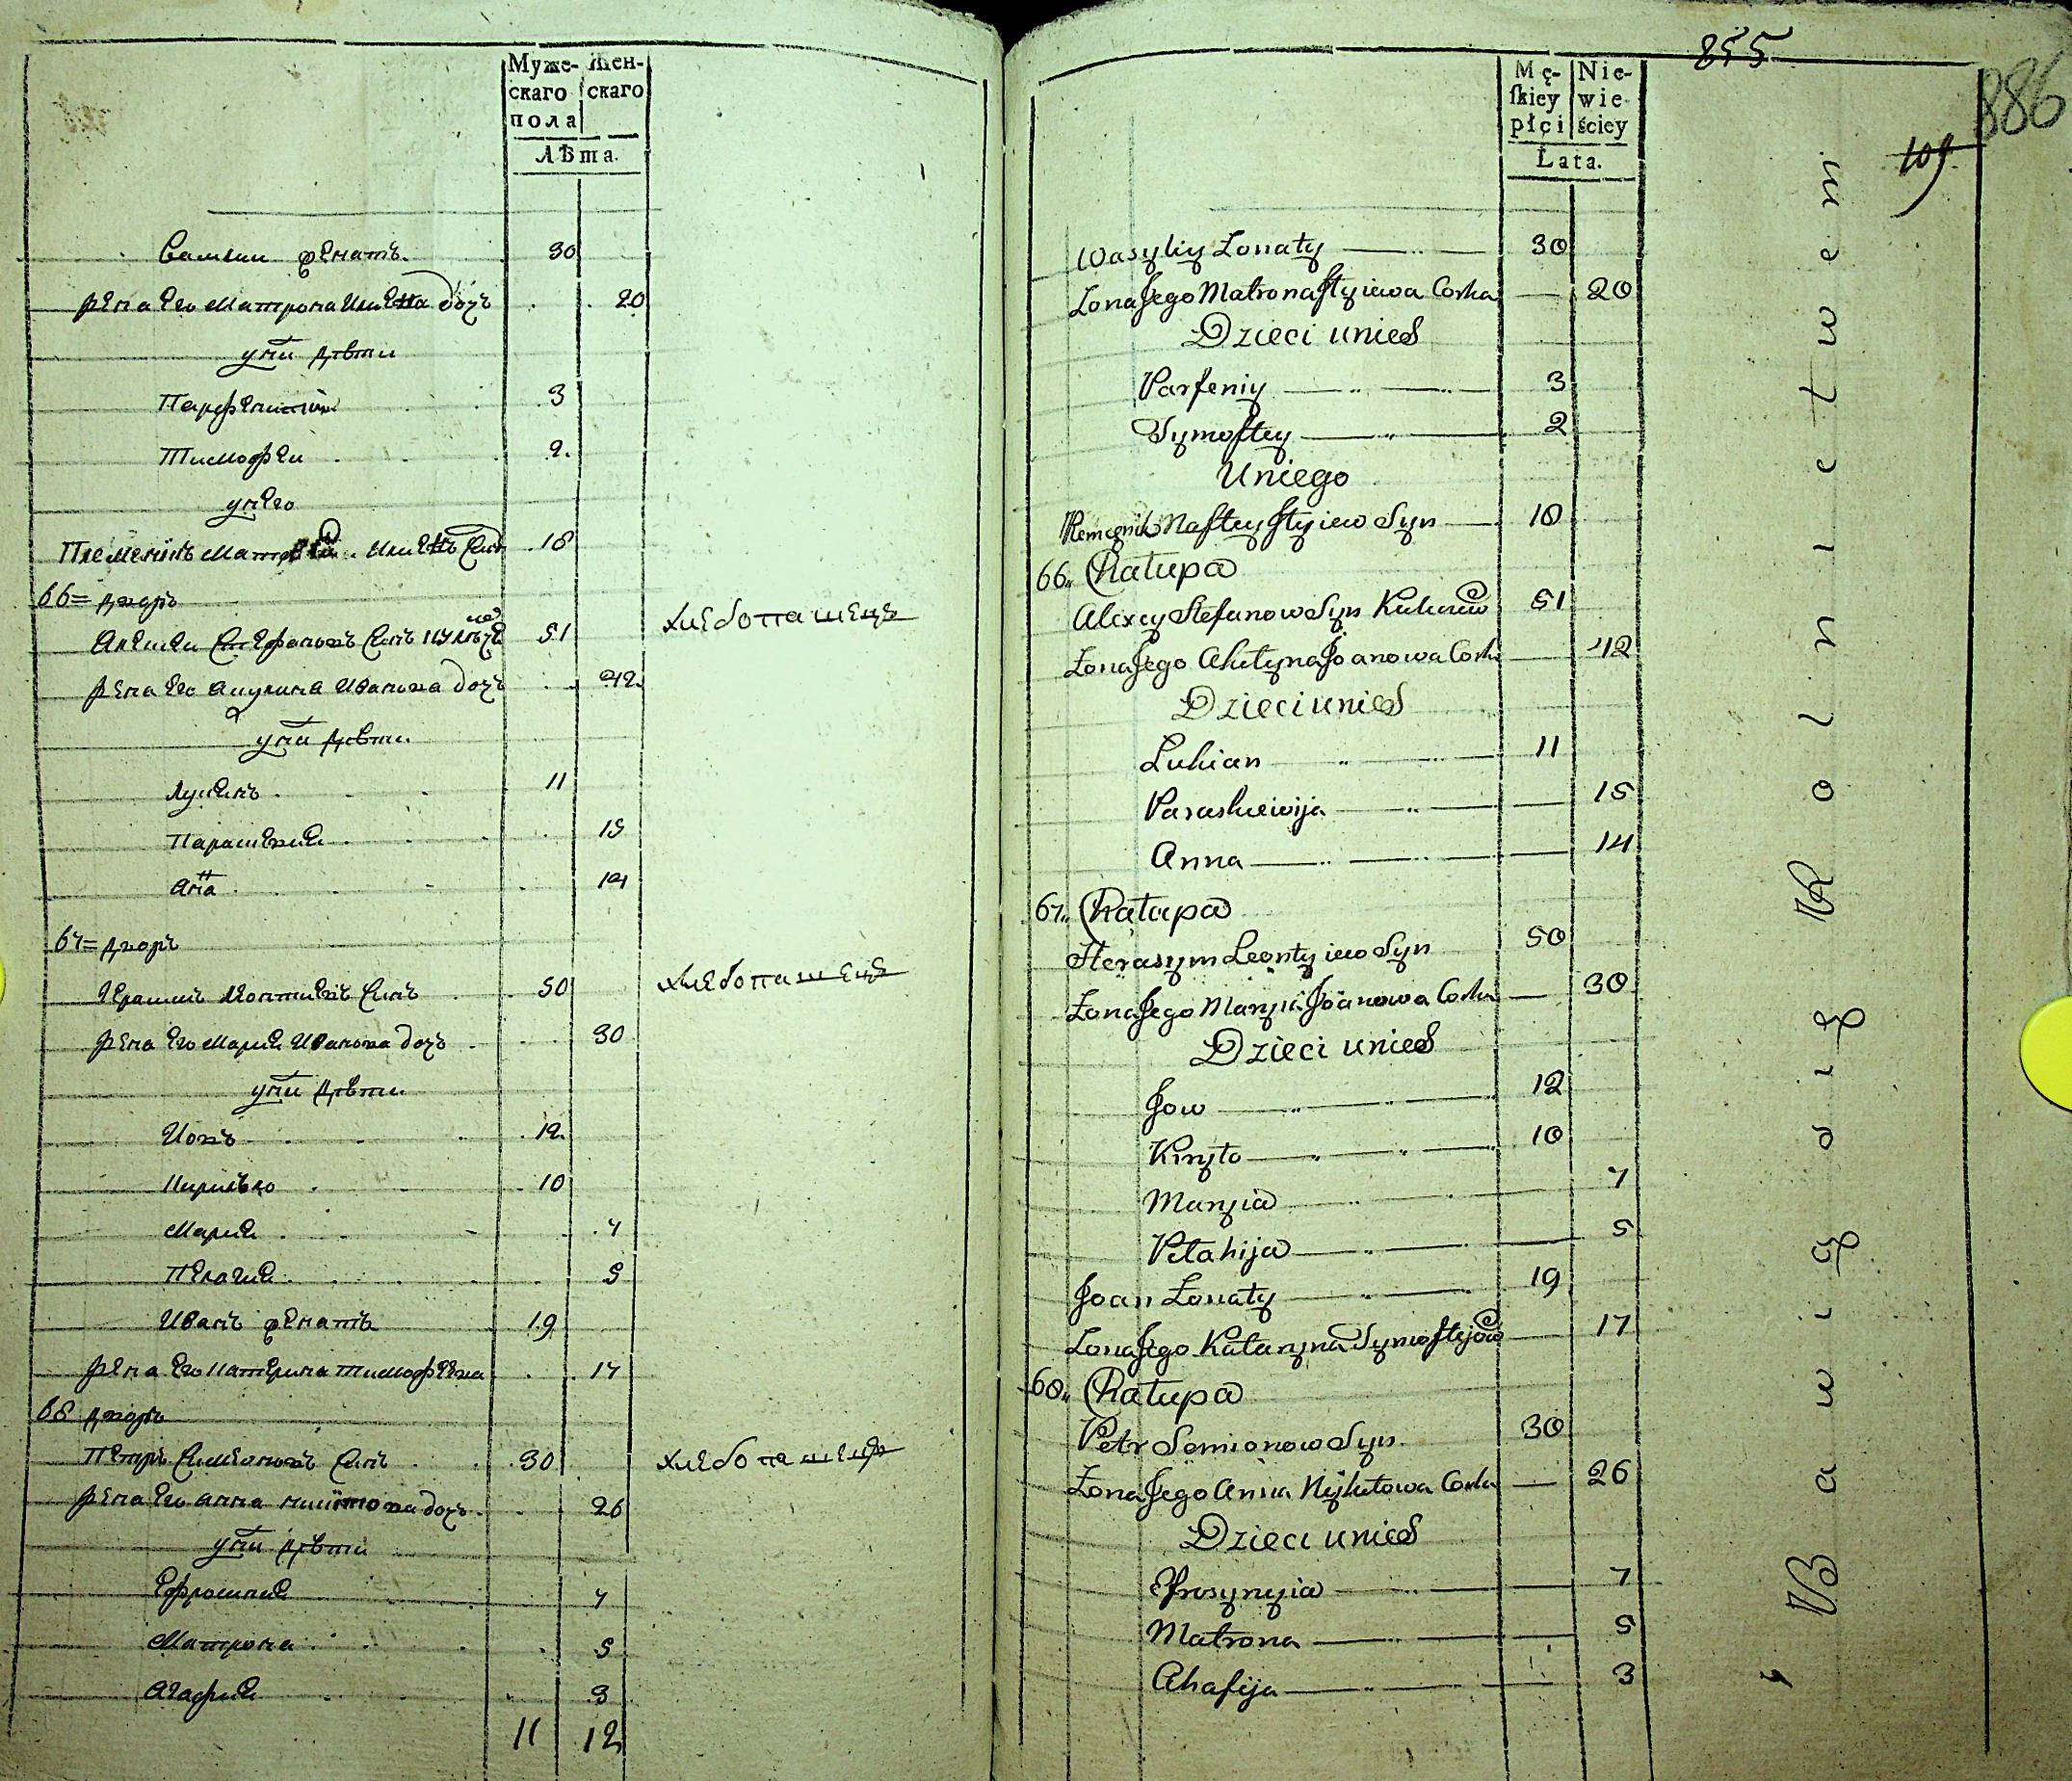 Муже-
скаго
пола
Жен-
скаго
Лѣта.
Василий женатъ. 30
жена его Матрона Илиева дочь 20
у них дѣти
Парфений 3
Тимофей 2.
у него
племенникъ Матвей Илиевъ сынъ 18
66 = дворъ
Алексей Стефановъ сынъ 51 хлебопашецъ
жена его Акулина Иванова дочь 42.
у них дѣти
Лукянъ 11
Параскевия 15
Анна 14
67 = дворъ
Герасимъ Леонтиевъ сынъ 50 хлебопашецъ
жена его Мария Иванова дочь 30
у них дѣти
Иовъ 12.
Кирилъло 10
Мария 7
Пелагия 5
Иванъ женатъ 19
жена его Катерина Тимофеева 17
68 дворъ
Петръ Симеоновъ сынъ 30 хлебопашецъ
жена его Анна Никитова дочь 26
у них дѣти
Ефросиния 7
Матрона 5
Агафия 3
11 12
855
886
109
Mę-
skiey
płci
Nie-
wie-
ściey
Łata.
Wasyliy Żonaty 30
Żona Jego Matrona Jlyiewa Corka 20
Dzieci unich
Parfeniy 3
Tymoftey 2
Uniego
Plemęnik Maftey Jlyiew Syn 18
66„ Chałupa
Alexey Stefanow Syn 51
Żona Jego Akulyna Joanowa Corka 42
Dzieci unich
Lukian 11
Paraskiewija 15
Anna 14
67„ Chałupa
Herasym Leontyiew Syn 50
Żona Jego Maryia Joanowa Corka 30
Dzieci unich
Jow 12
Kiryło 10
Maryia 7
Pelahija 5
Joan Żonaty 19
Żona Jego Kataryna Tymoftejowa 17
68„ Chałupa
Petr Semionow Syn 30
Żona Jego Anna Nykitowa Corka 26
Dzieci unich
Efrosynyia 7
Matrona 5
Ahafija 3
Bawią się Rolnictwem